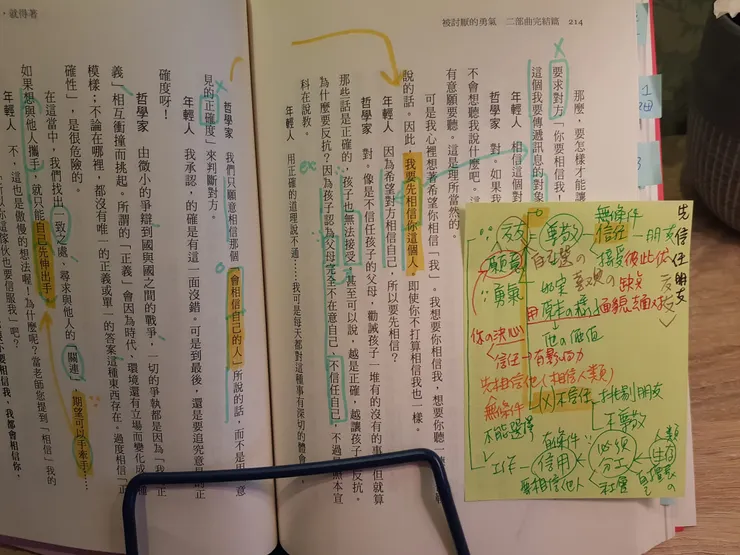 被討厭的勇氣　二部曲完結篇　214
那麼，要怎樣才能讓
要求對方，你要相信我！
這個我要傳遞訊息的對象
年輕人　相信這個對
哲學家　對。如果我
不會想聽我說什麼吧。這
有意願要聽。這是理所當然的。
可是我心裡想著希望你相信「我」。我想要你相信我，想要你聽一聽
說的話。因此，我要先相信你這個人。即使你不打算相信我也一樣。
年輕人　因為希望對方相信自己，所以要先相信？
哲學家　對。像是不信任孩子的父母，勸誡孩子一堆有的沒有的事
那些話是正確的，孩子也無法接受。甚至可以說，越是正確，越讓孩子反抗。
為什麼要反抗？因為孩子認為父母完全不在意自己、不信任自己，不過是照本宣
科在說教。
年輕人　用正確的道理說不通……我可是每天都對這種事有深切的體會
，就得著
哲學家　我們只願意相信那個「會相信自己的人」所說的話，而不是用「意
見的正確度」來判斷對方。
年輕人　我承認，的確是有這一面沒錯。可是到最後，還是要追究意見的正
確度呀！
哲學家　由微小的爭辯到國與國之間的戰爭，一切的爭執都是因為「我的正
義」相互衝撞而挑起。所謂的「正義」會因為時代、環境還有立場而變化成
模樣；不論在哪裡，都沒有唯一的正義或單一的答案這種東西存在。過度相信「正
確性」，是很危險的。
在這當中，我們找出一致之處，尋求與他人的「關連」，期望可以手牽手……
如果想與他人攜手，就只能自己先伸出手。
年輕人　不，這也是傲慢的想法喔！為什麼呢？當老師您提到「相信」我的
ex
先信任朋友
無條件
尊敬　信任－朋友
交友
願意
勇氣
缺點
原本的樣子
他の価值
你の決心
先相信他（相信人類）
無條件
不信任
挑剔朋友
不尊敬
不能選擇
有條件
工作－信用
必須
分工
社會
人類
要相信他人